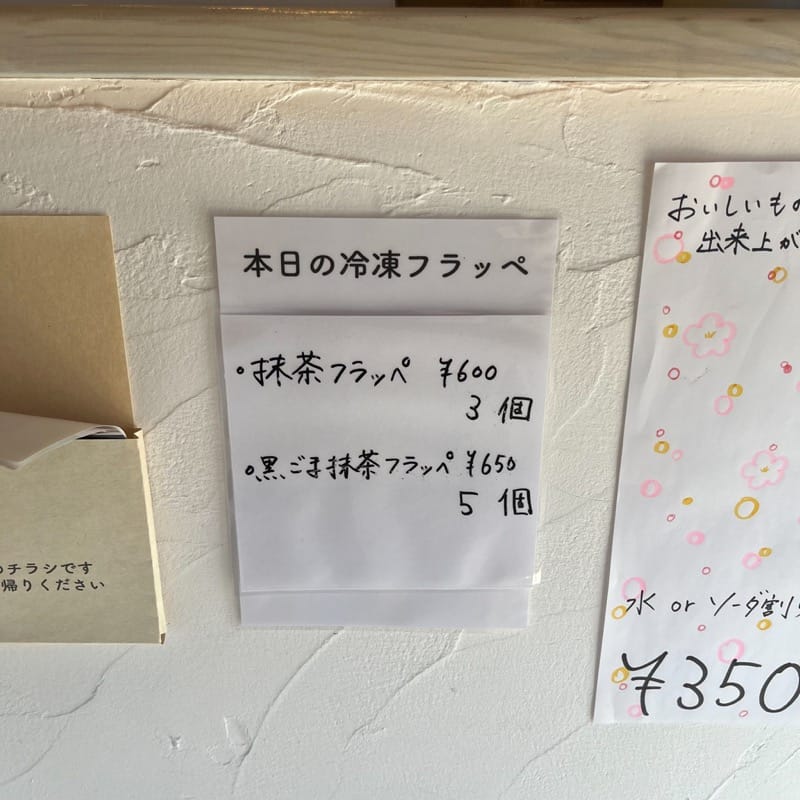 本日の冷凍フラッペ
・抹茶フラッペ ¥600
3個
・黒ごま抹茶フラッペ ¥650
5個
のチラシです
帰りください
おいしいもの
出来上が
水 or ソーダ割り
¥350